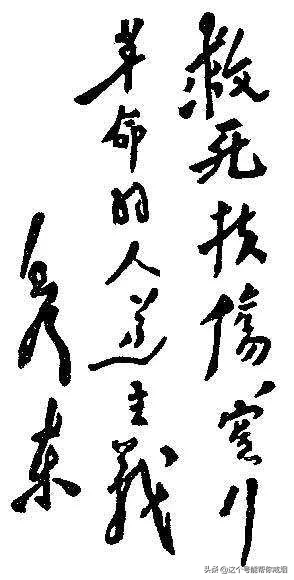 救死扶傷實行
革命的人道主義
毛澤東
头条 @这个号能帮你戒烟